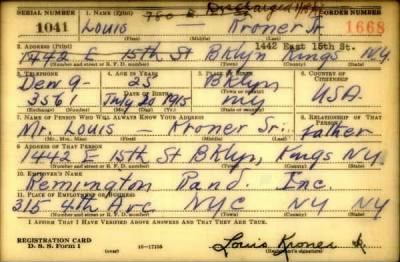 SERIAL NUMBER 1. NAME (Print) Discharged ORDER NUMBER
1041 Louis — Kroner Jr 1668
(First) (Middle) (Last)
2. ADDRESS (Print) 1442 East 15th St.
1442 E 15th St BKlyn Kings NY.
(Number and street or R. F. D. number) (Town) (County) (State)
3. TELEPHONE 4. AGE IN YEARS 5. PLACE OF BIRTH 6. COUNTRY OF CITIZENSHIP
Dew 9- 25 BKlyn
DATE OF BIRTH
3561 July 20 1915 NY USA
7. NAME OF PERSON WHO WILL ALWAYS KNOW YOUR ADDRESS 8. RELATIONSHIP OF THAT PERSON
Mr. Louis — Kroner Sr. Father
(Mr., Mrs., Miss) (First) (Middle) (Last)
9. ADDRESS OF THAT PERSON
1442 E 15th St BKlyn, Kings NY
(Number and street or R. F. D. number) (Town) (County) (State)
10. EMPLOYER'S NAME
Remington Rand. Inc.
11. PLACE OF EMPLOYMENT OR BUSINESS
315 4th Ave NYC NY NY
(Number and street or R. F. D. number) (Town) (County) (State)
I AFFIRM THAT I HAVE VERIFIED ABOVE ANSWERS AND THAT THEY ARE TRUE.
REGISTRATION CARD
D. S. S. Form 1 16-17105 Louis Kroner Jr.
(Registrant's signature)